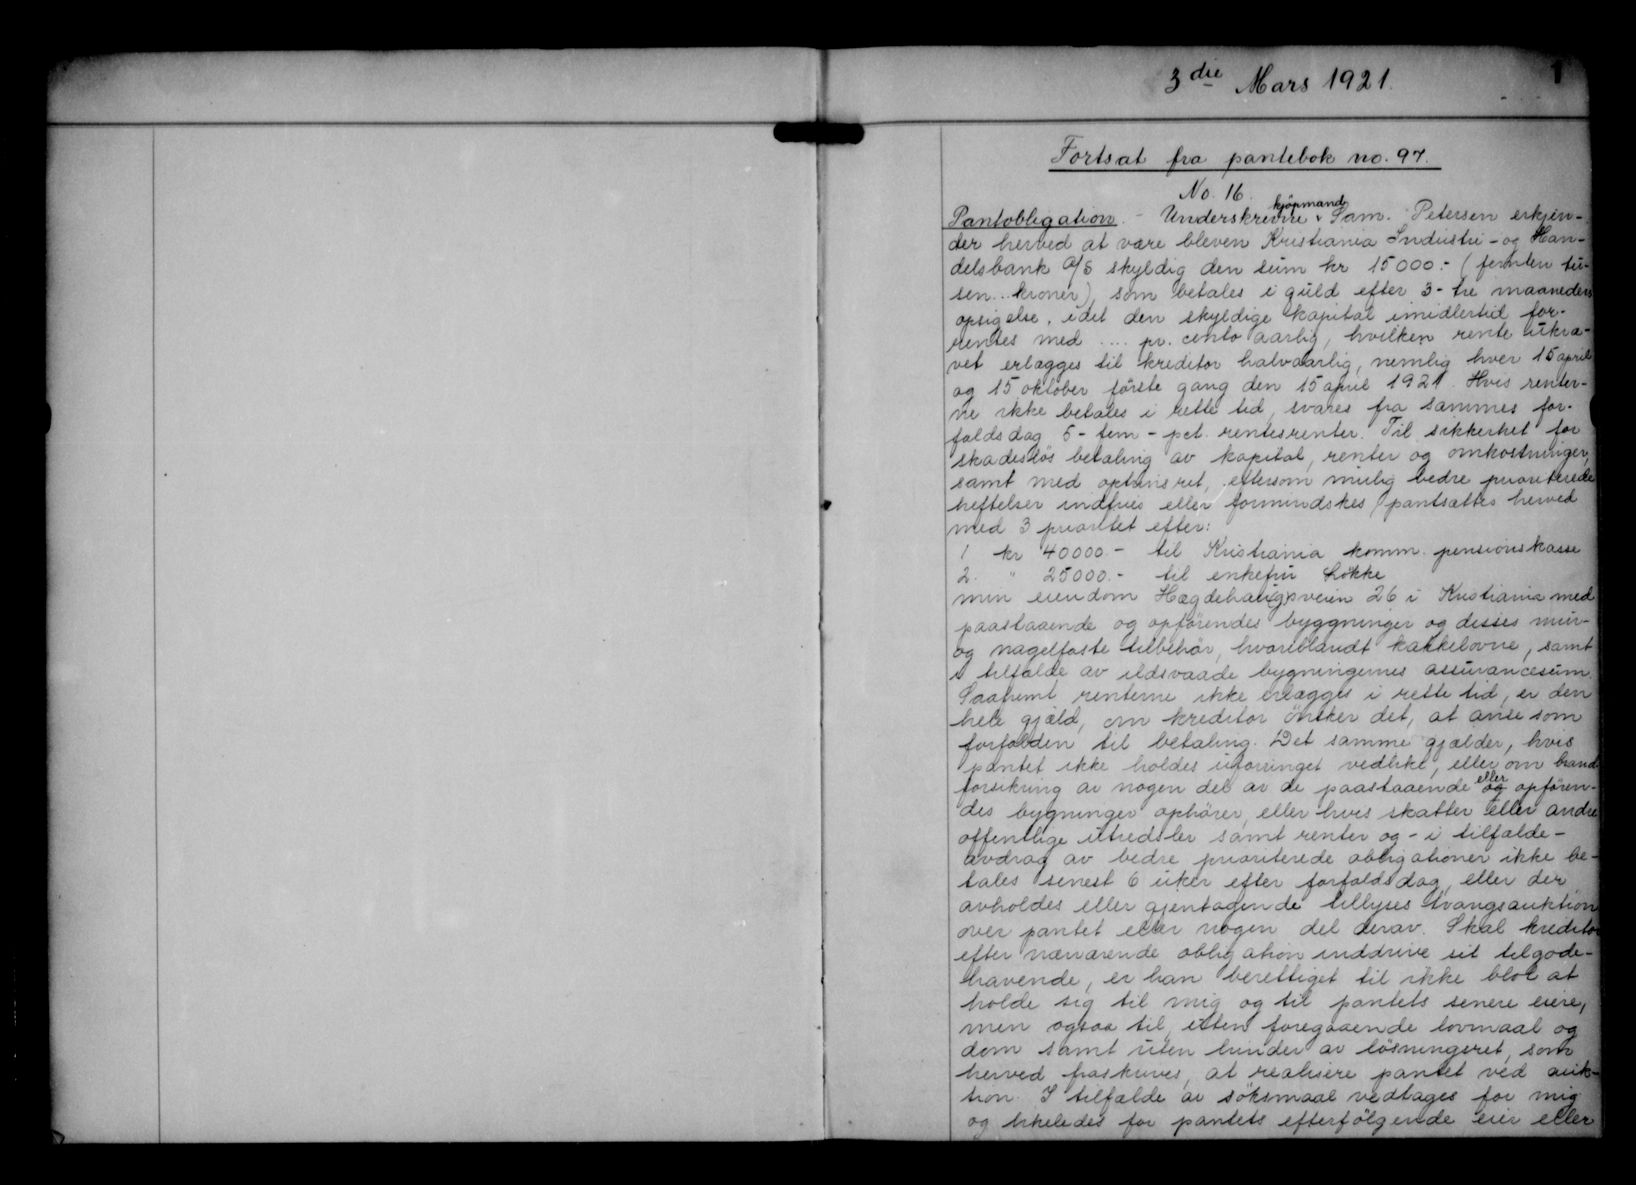 3die Mars 1921.
1
Fortsat fra pantebok no. 97.
No. 16.
kjöpmand
Pantobligation. - Underskrevne v Sam. Petersen erkjen-
der herved at være bleven Kristiania Industri- og Han-
delsbank A/S skyldig den sum kr 15000.- (femten tu-
sen.. kroner), som betales i guld efter 3- tre maaneders
opsigelse, idet den skyldige kapital imidlertid for-
rentes med .... pr. cento aarlig, hvilken rente ukra-
vet erlægges til kreditor halvaarlig, nemlig hver 15 april
og 15 oktober förste gang den 15 april 1921. Hvis renter-
ne ikke betales i rette tid, svares fra sammes for-
faldsdag 5- fem - pct. rentesrenter. Til sikkerhet for
skadeslös betaling av kapital, renter og omkostninger,
samt med optrinsret, eftersom mulig bedre prioriterede
heftelser indfries eller formindskes pantsættes herved
med 3 prioritet efter:
1 kr 40000.- til Kristiania komm. pensionskasse
2. " 25000.- til enkefru Lökke
min eiendom Hægdehaugsveien 26 i Kristiania med
paastaaende og opförendes byggninger og disses mur-
og nagelfaste tilbehör, hvoriblandt kakkelovne, samt
i tilfælde av ildsvaade bygningernes assurancesum.
Saafremt renterne ikke erlægges i rette tid, er den
hele gjæld, om kreditor önsker det, at anse som
forfalden til betaling. Det samme gjælder, hvis
pantet ikke holdes uforringet vedlike, eller om brand-
eller
forsikring av nogen del av de paastaaende og opfören-
des bygninger ophörer, eller hvis skatter eller andre
offentlige utredsler samt renter og - i tilfælde -
avdrag av bedre prioriterede obligationer ikke be-
tales senest 6 uker efter forfaldsdag, eller der
avholdes eller gjentagende tillyses tvangsauktion
over pantet eller nogen del derav. Skal kreditor
efter nærværende obligation inddrive sit tilgode-
havende, er han berettiget til ikke blot at
holde sig til mig og til pantets senere eiere,
men ogsaa til, uten foregaaende lovmaal og
dom samt uten hinder av lösningsret, som
herved fraskrives, at realisere pantet ved auk-
tion. I tilfælde av söksmaal vedtages for mig
og likeledes for pantets efterfölgende eier eller